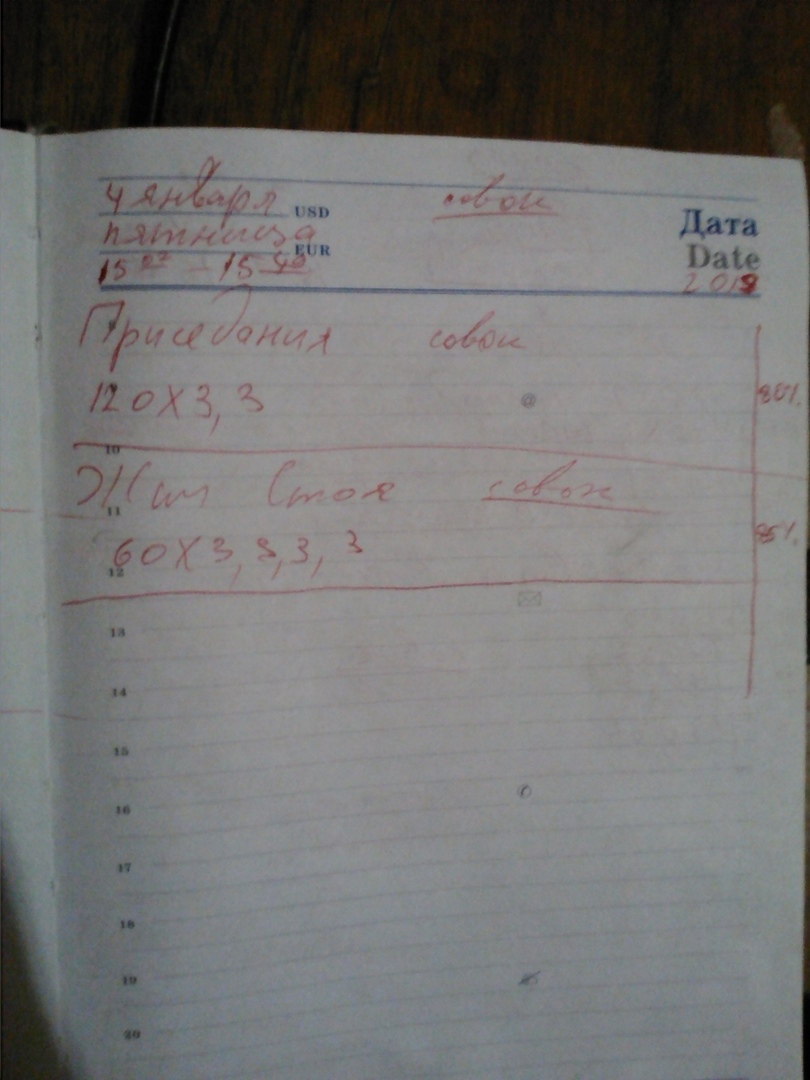 4 января USD совок
пятница EUR Дата
15 07 - 15 40 Date
2019
Приседания совок
120X3, 3 80%
10
Жим Стоя совок
11
60X3, 3, 3, 3 85%
12
13
14
15
16
17
18
19
20